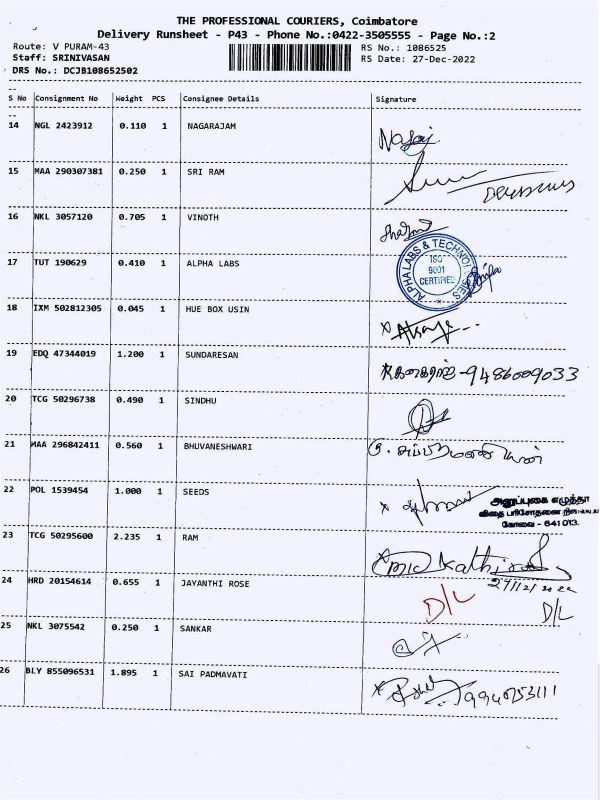 THE PROFESSIONAL COURIERS, Coimbatore
Delivery Runsheet - P43 - Phone No.:0422-3505555 - Page No.:2
Route: V PURAM-43 RS No.: 1086525
Staff: SRINIVASAN RS Date: 27-Dec-2022
DRS No.: DCJB108652502
S No Consignment No Weight PCS Consignee Details Signature
14 NGL 2423912 0.110 1 NAGARAJAM
15 MAA 290307381 0.250 1 SRI RAM
16 NKL 3057120 0.705 1 VINOTH
17 TUT 190629 0.410 1 ALPHA LABS
ALPHA LABS & TECHNOLOGIES
ISO
9001
CERTIFIED
18 IXM 502812305 0.045 1 HUE BOX USIN
19 EDQ 47344019 1.200 1 SUNDARESAN
-9486009033
20 TCG 50296738 0.490 1 SINDHU
21 MAA 296842411 0.560 1 BHUVANESHWARI
22 POL 1539454 1.000 1 SEEDS
அனுப்புகை எழுத்தர்
விதை பரிசோதனை
கோவை - 641 013.
23 TCG 50295600 2.235 1 RAM
27/12/2022
24 HRD 20154614 0.655 1 JAYANTHI ROSE D/L D/L
25 NKL 3075542 0.250 1 SANKAR
26 BLY 855096531 1.895 1 SAI PADMAVATI